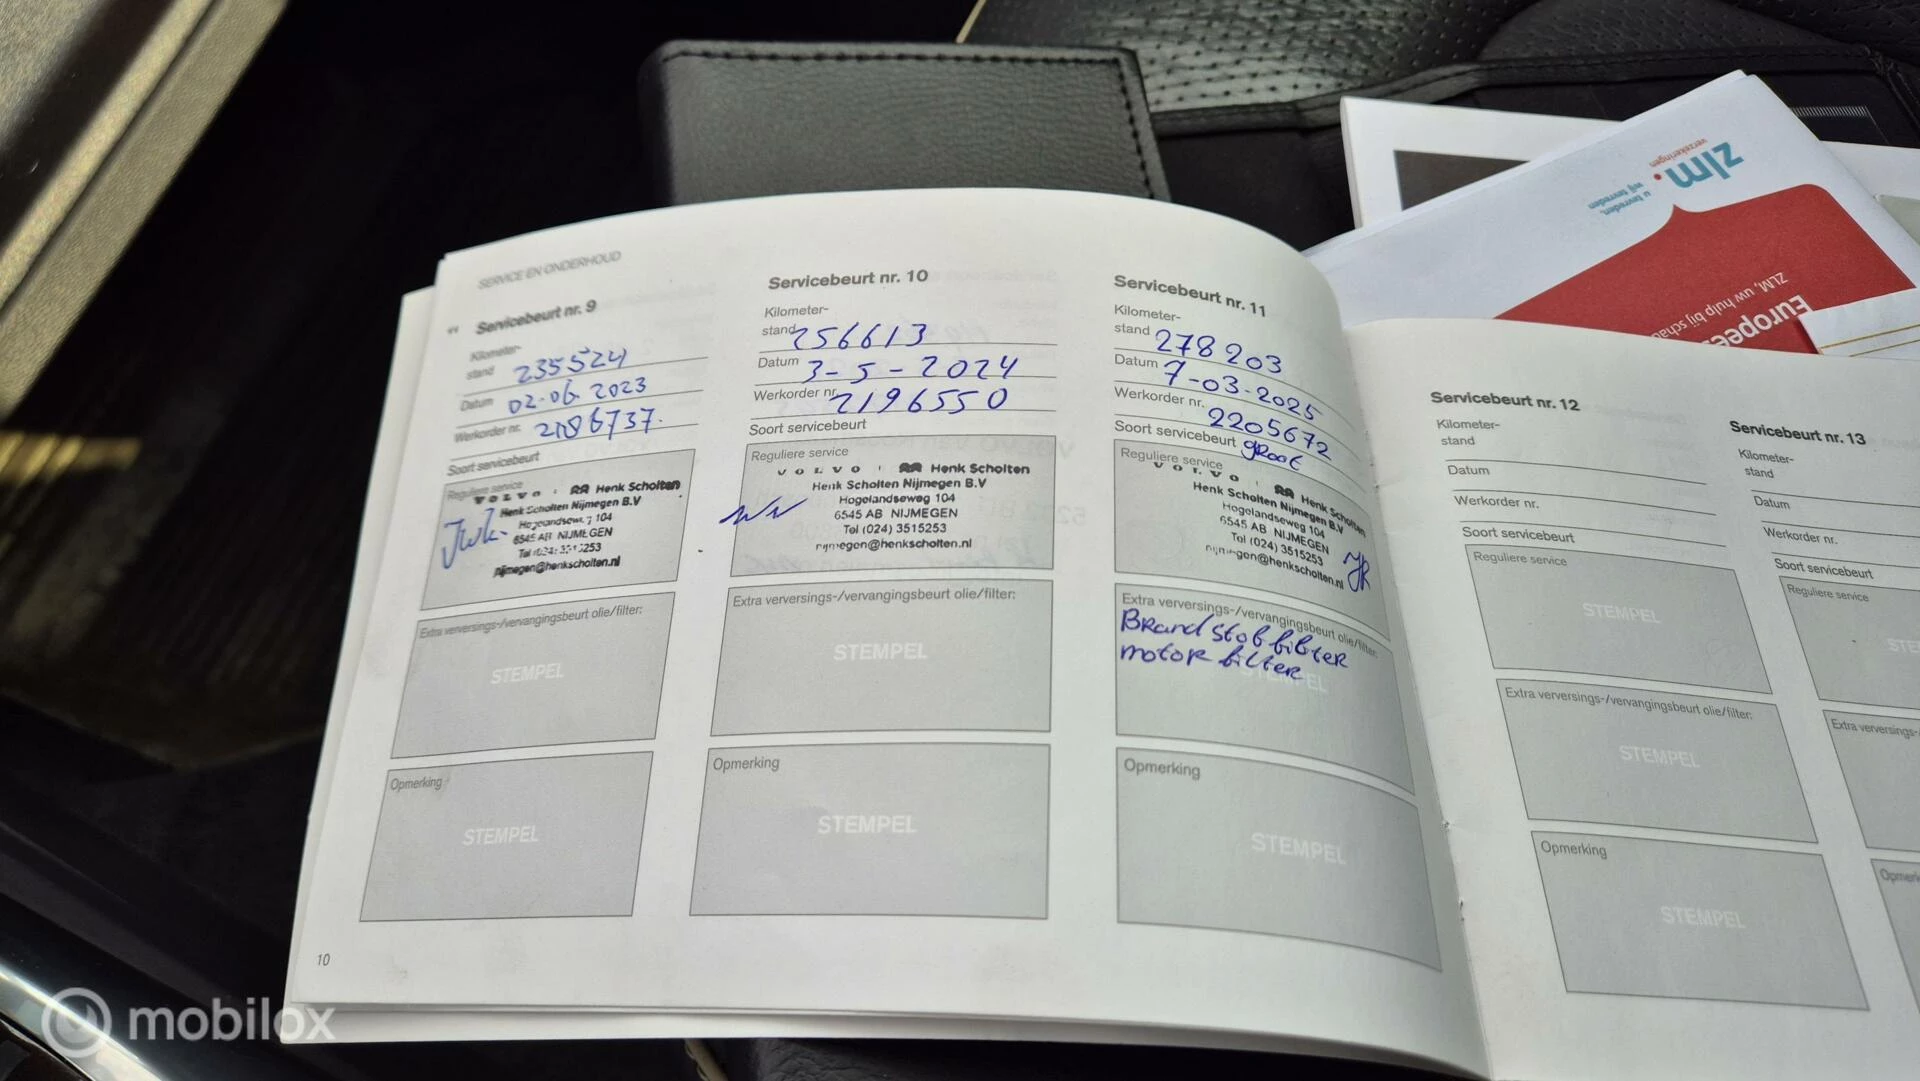 SERVICE EN ONDERHOUD
Servicebeurt nr. 9
Kilometer-
stand 235524
Datum 02-06 2023
Werkorder nr. 2186737.
Soort servicebeurt
Reguliere service
VOLVO Henk Scholten
Henk Scholten Nijmegen B.V
Hogelandseweg 104
6545 AB NIJMEGEN
Tel (024) 3515253
nijmegen@henkscholten.nl
Extra verversings-/vervangingsbeurt olie/filter:
STEMPEL
Opmerking
STEMPEL
10
Servicebeurt nr. 10
Kilometer-
stand 256613
Datum 3-5-2024
Werkorder nr. 2196550
Soort servicebeurt
Reguliere service
VOLVO Henk Scholten
Henk Scholten Nijmegen B.V
Hogelandseweg 104
6545 AB NIJMEGEN
Tel (024) 3515253
nijmegen@henkscholten.nl
Extra verversings-/vervangingsbeurt olie/filter:
STEMPEL
Opmerking
STEMPEL
Servicebeurt nr. 11
Kilometer-
stand 278203
Datum 7-03-2025
Werkorder nr. 2205672
Soort servicebeurt groot
Reguliere service
VOLVO Henk Scholten
Henk Scholten Nijmegen B.V
Hogelandseweg 104
6545 AB NIJMEGEN
Tel (024) 3515253
nijmegen@henkscholten.nl
Extra verversings-/vervangingsbeurt olie/filter:
Brandstoffilter
motor filter
STEMPEL
Opmerking
STEMPEL
Servicebeurt nr. 12
Kilometer-
stand
Datum
Werkorder nr.
Soort servicebeurt
Reguliere service
STEMPEL
Extra verversings-/vervangingsbeurt olie/filter:
STEMPEL
Opmerking
STEMPEL
Servicebeurt nr. 13
Kilometer-
stand
Datum
Werkorder nr.
Soort servicebeurt
Reguliere service
STE
Extra verversings-
Opmerk
zlm.
verzekeringen
u tevreden,
wij tevreden
Europees
ZLM, uw hulp bij schad
mobilox